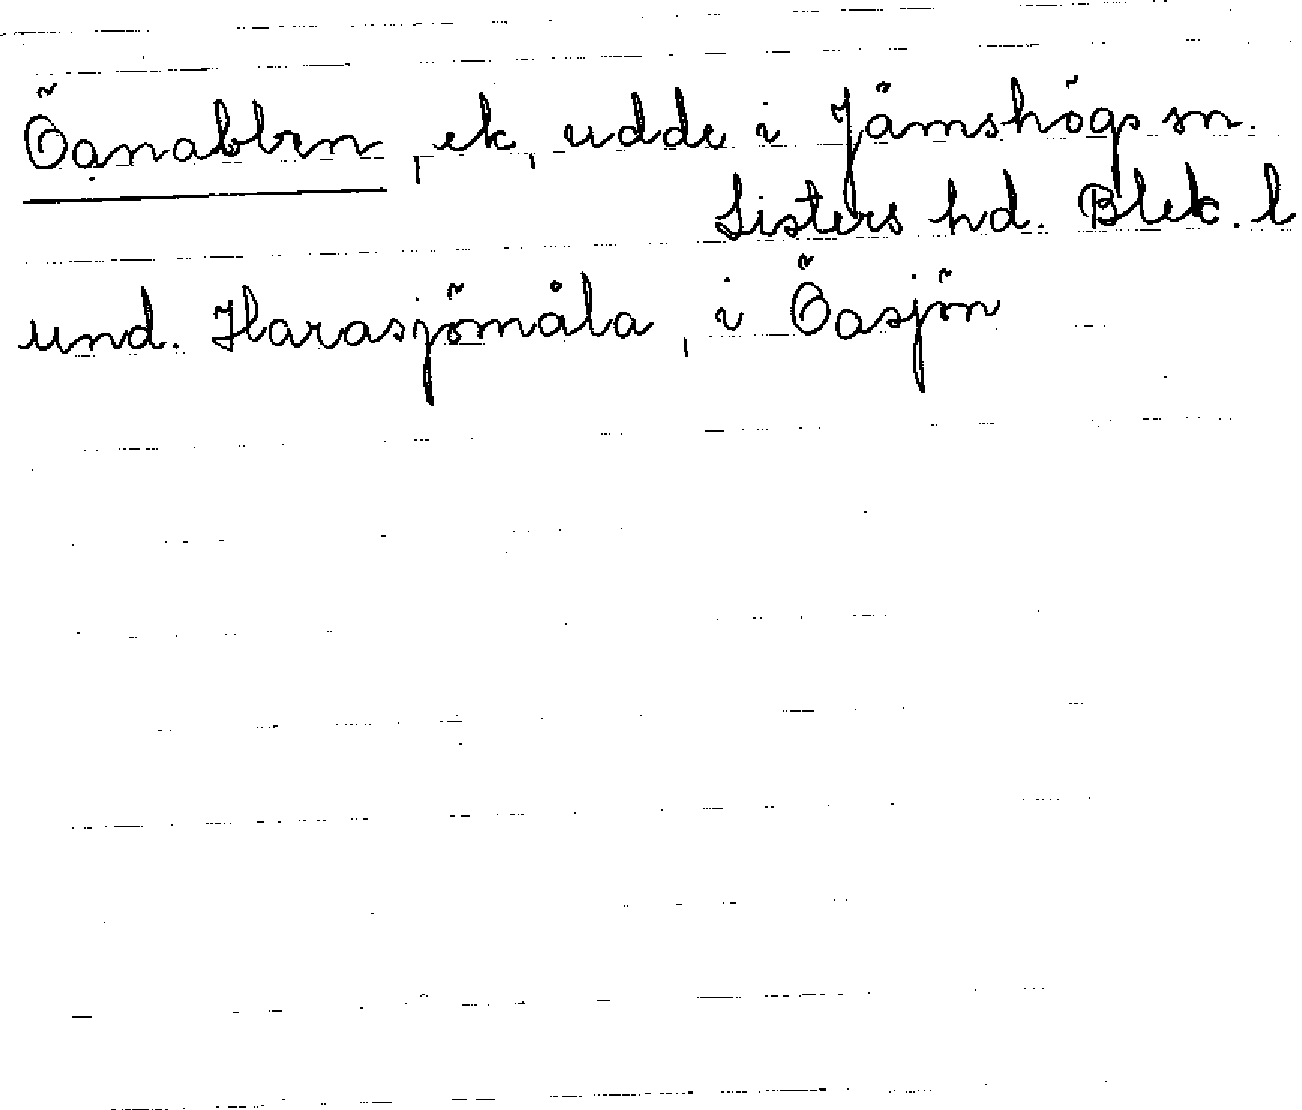 Öanabben, ek, udde i Jämshögs sn.
Listers hd. Blek. l
und. Harasjömåla, i Öasjön